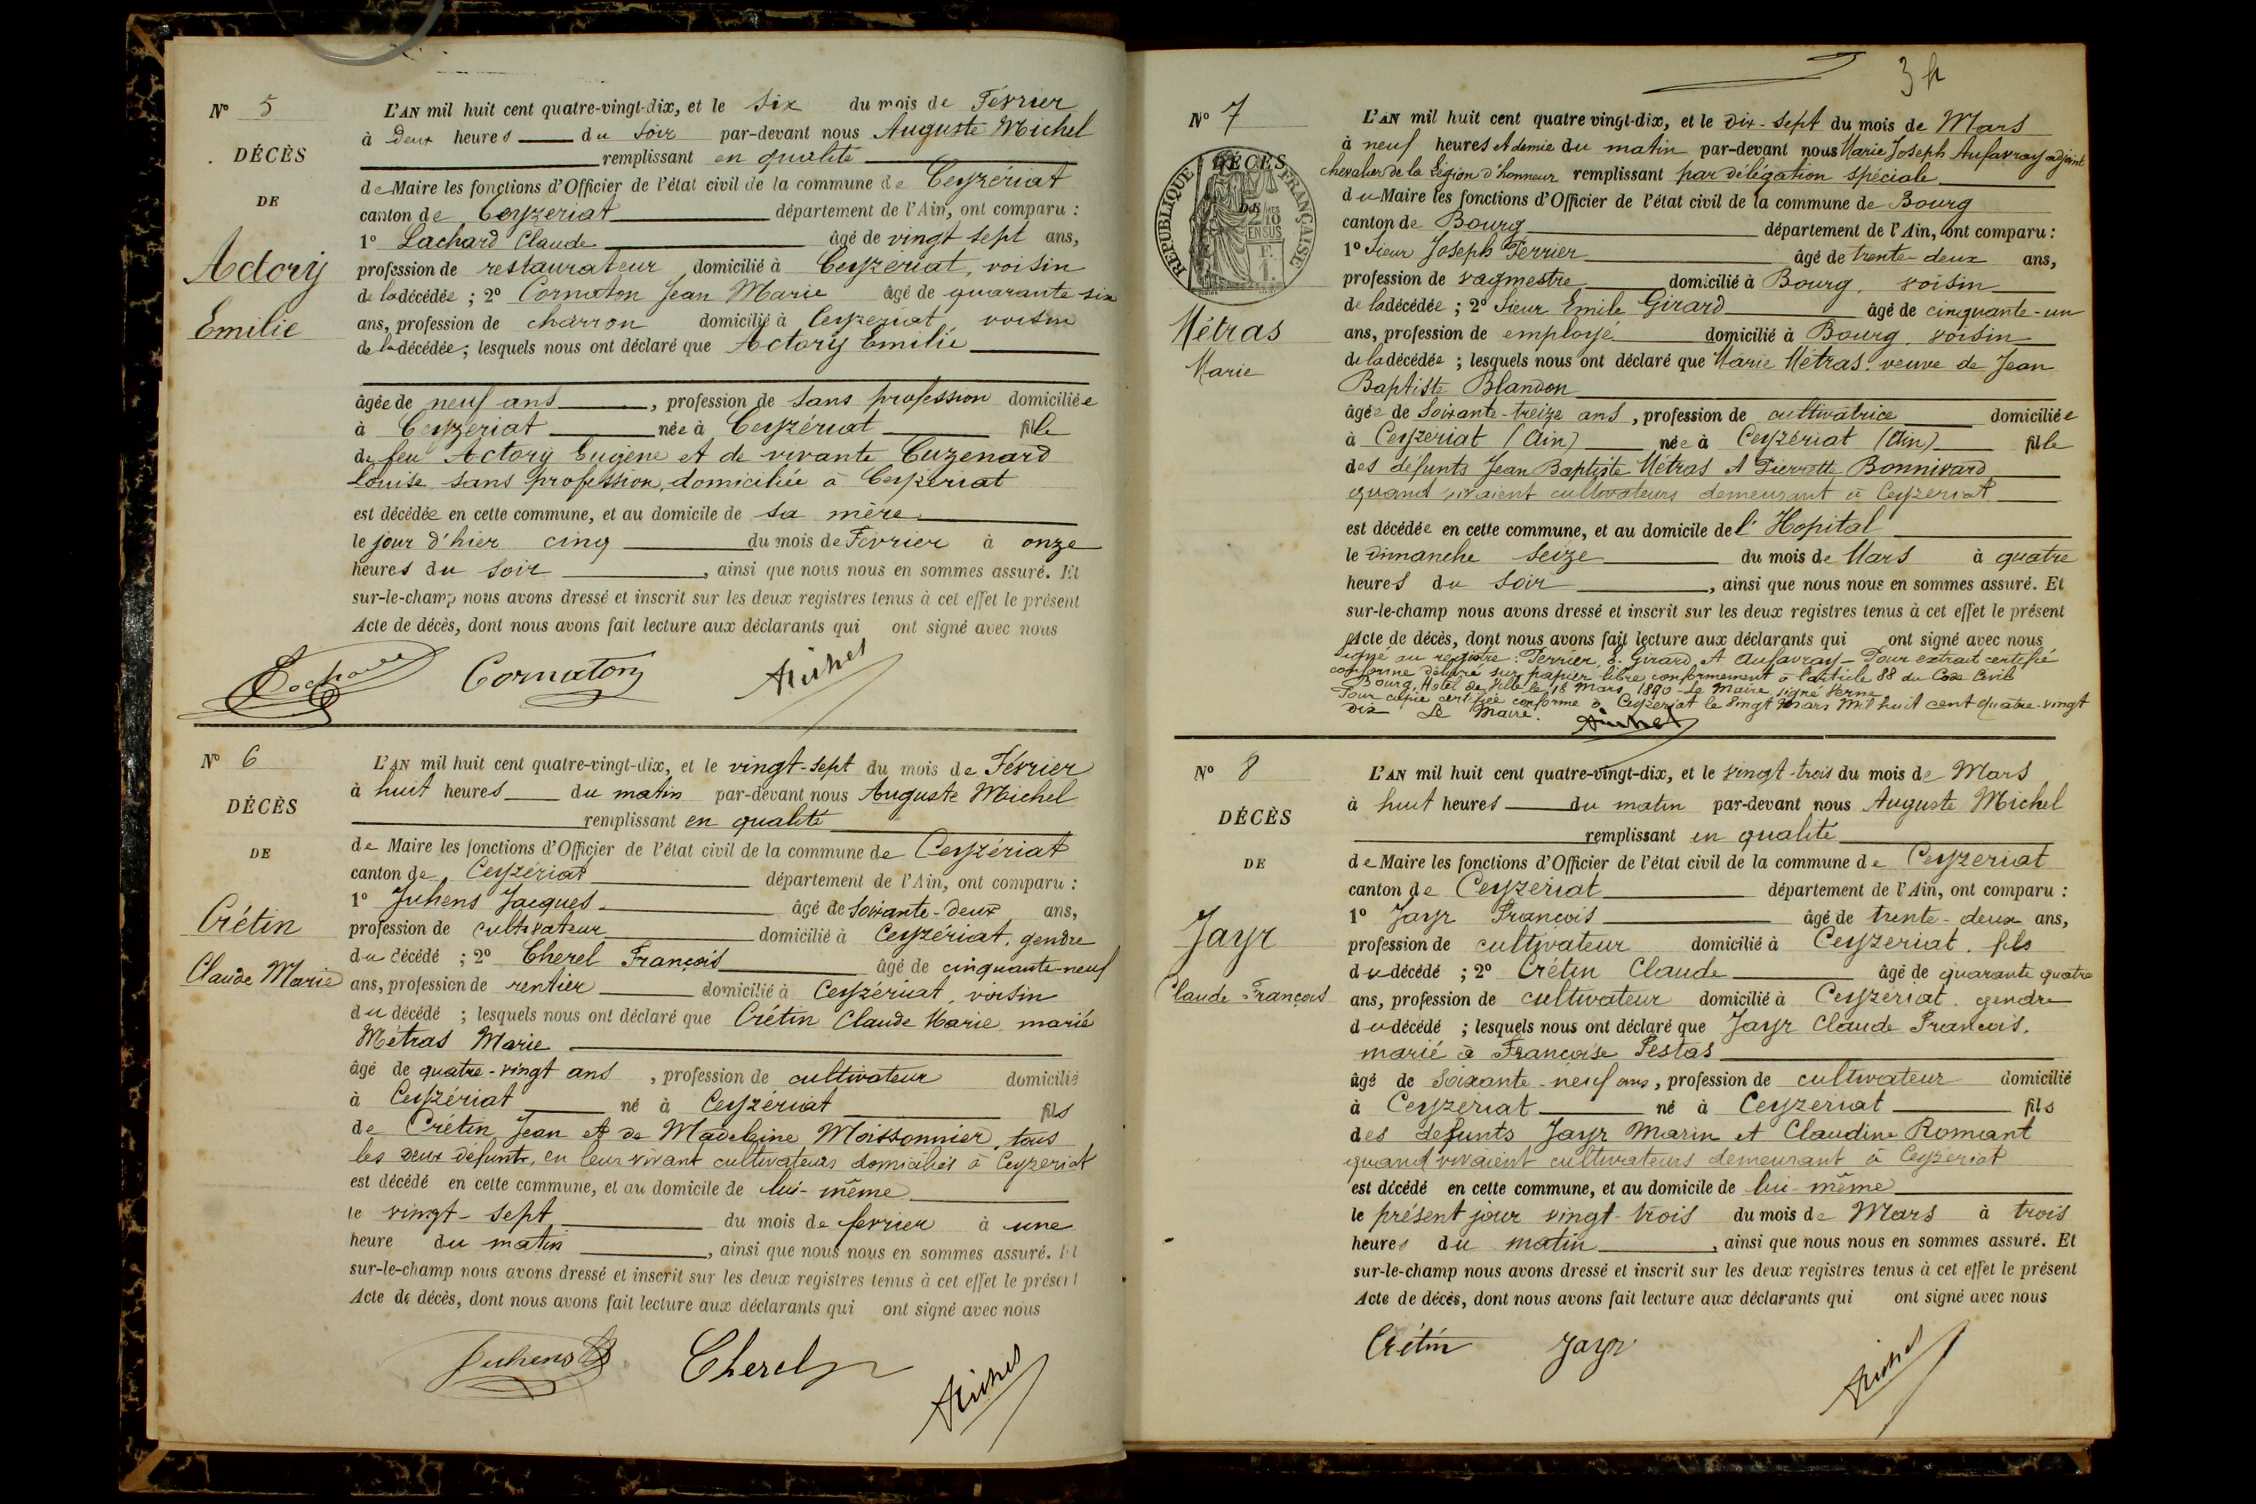 N° 5
DÉCÈS
DE
Actory
Emilie
L'AN mil huit cent quatre-vingt-dix, et le six du mois de Février
à Deux heures du soir par-devant nous Auguste Michel
remplissant en qualité
de Maire les fonctions d'Officier de l'état civil de la commune de Ceyzériat
canton de Ceyzeriat département de l'Ain, ont comparu :
1° Lachard Claude âgé de vingt sept ans,
profession de restaurateur domicilié à Ceyzeriat, voisin
de la décédée ; 2° Cornaton Jean Marie âgé de quarante six
ans, profession de charron domicilié à Ceyzeriat voisin
de la décédée ; lesquels nous ont déclaré que Actory Emilie
âgée de neuf ans, profession de sans profession domiciliée
à Ceyzeriat née à Ceyzériat fille
de feu Actory Eugène et de vivante Cuzenard
Louise sans profession, domiciliée à Ceyzeriat
est décédée en cette commune, et au domicile de sa mère
le jour d'hier cinq du mois de Fevrier à onze
heures du soir, ainsi que nous nous en sommes assuré. Et
sur-le-champ nous avons dressé et inscrit sur les deux registres tenus à cet effet le présent
Acte de décès, dont nous avons fait lecture aux déclarants qui ont signé avec nous
Cornaton Michel
N° 6
DÉCÈS
DE
Crétin
Claude Marie
L'AN mil huit cent quatre-vingt-dix, et le vingt-sept du mois de Février
à huit heures du matin par-devant nous Auguste Michel
remplissant en qualité
de Maire les fonctions d'Officier de l'état civil de la commune de Ceyzériat
canton de Ceyzériat département de l'Ain, ont comparu :
1° Juhens Jacques âgé de soixante-deux ans,
profession de cultivateur domicilié à Ceyzériat, gendre
du décédé ; 2° Cherel François âgé de cinquante-neuf
ans, profession de rentier domicilié à Ceyzériat, voisin
du décédé ; lesquels nous ont déclaré que Crétin Claude Marie marié
Métras Marie
âgé de quatre-vingt ans, profession de cultivateur domicilié
à Ceyzériat né à Ceyzériat fils
de Crétin Jean et de Madeleine Moissonnier, tous
les deux défunts, en leur vivant cultivateurs domiciliés à Ceyzeriat
est décédé en cette commune, et au domicile de lui-même
le vingt-sept du mois de fevrier à une
heure du matin, ainsi que nous nous en sommes assuré. Et
sur-le-champ nous avons dressé et inscrit sur les deux registres tenus à cet effet le présent
Acte de décès, dont nous avons fait lecture aux déclarants qui ont signé avec nous
Juhens Cherel Michel
N° 7
RÉPUBLIQUE FRANÇAISE
DÉCÈS
DE
Métras
Marie
L'AN mil huit cent quatre vingt-dix, et le dix-sept du mois de Mars
à neuf heures et demie du matin par-devant nous Marie Joseph Aufavray adjoint
chevalier de la Légion d'honneur remplissant par délégation spéciale
du Maire les fonctions d'Officier de l'état civil de la commune de Bourg
canton de Bourg département de l'Ain, ont comparu :
1° Sieur Joseph Perrier âgé de trente-deux ans,
profession de vagmestre domicilié à Bourg, voisin
de la décédée ; 2° Sieur Emile Girard âgé de cinquante-un
ans, profession de employé domicilié à Bourg, voisin
de la décédée ; lesquels nous ont déclaré que Marie Métras, veuve de Jean
Baptiste Blandon
âgée de soixante-treize ans, profession de cultivatrice domiciliée
à Ceyzeriat (Ain) née à Ceyzériat (Ain) fille
des défunts Jean Baptiste Métras et Pierrette Bonnivard
quand vivaient cultivateurs demeurant à Ceyzeriat
est décédée en cette commune, et au domicile de l'Hopital
le dimanche seize du mois de Mars à quatre
heures du soir, ainsi que nous nous en sommes assuré. Et
sur-le-champ nous avons dressé et inscrit sur les deux registres tenus à cet effet le présent
Acte de décès, dont nous avons fait lecture aux déclarants qui ont signé avec nous
signé au registre : Perrier, E. Girard, et Aufavray – Pour extrait certifié
conforme délivré sur papier libre conformément à l'article 88 du Code Civil
Bourg, Hotel de Ville le 18 Mars 1890 – Le Maire, signé Verne
Pour copie certifiée conforme à Ceyzeriat le vingt Mars mil huit cent quatre-vingt
dix Le Maire. Michel
N° 8
DÉCÈS
DE
Jayr
Claude François
L'AN mil huit cent quatre-vingt-dix, et le vingt-trois du mois de Mars
à huit heures du matin par-devant nous Auguste Michel
remplissant en qualité
de Maire les fonctions d'Officier de l'état civil de la commune de Ceyzeriat
canton de Ceyzeriat département de l'Ain, ont comparu :
1° Jayr François âgé de trente-deux ans,
profession de cultivateur domicilié à Ceyzeriat, fils
du décédé ; 2° Crétin Claude âgé de quarante quatre
ans, profession de cultivateur domicilié à Ceyzeriat, gendre
du décédé ; lesquels nous ont déclaré que Jayr Claude François,
marié à Françoise Pestas
âgé de soixante-neuf ans, profession de cultivateur domicilié
à Ceyzériat né à Ceyzeriat fils
des defunts Jayr Marin et Claudine Romant
quand vivaient cultivateurs demeurant à Ceyzeriat
est décédé en cette commune, et au domicile de lui-même
le présent jour vingt-trois du mois de Mars à trois
heures du matin, ainsi que nous nous en sommes assuré. Et
sur-le-champ nous avons dressé et inscrit sur les deux registres tenus à cet effet le présent
Acte de décès, dont nous avons fait lecture aux déclarants qui ont signé avec nous
Crétin Jayr Michel